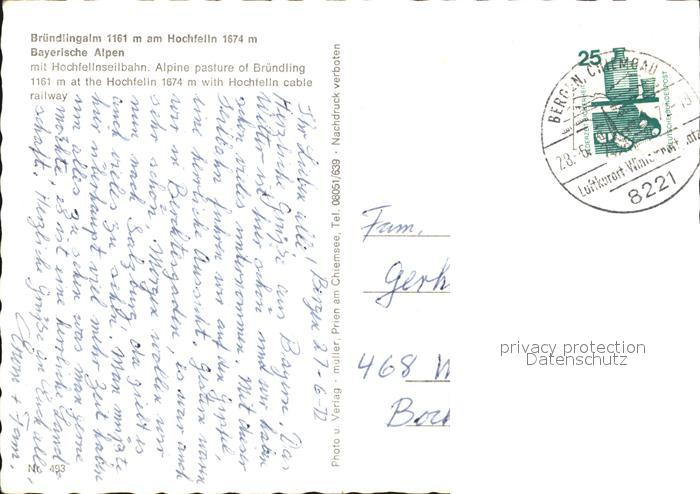 Bründlingalm 1161 m am Hochfelln 1674 m
Bayerische Alpen
mit Hochfellnseilbahn. Alpine pasture of Bründling
1161 m at the Hochfelln 1674 m with Hochfelln cable
railway
Ihr Lieben alle! Bergen 27-6-72
Herzliche Grüße aus Bayern. Das
Wetter ist hier schön und wir haben
schon vieles unternommen. Mit dieser
Seilbahn fuhren wir auf den Gipfel,
eine herrliche Aussicht. Gestern waren
wir in Berchtesgaden, es war auch
sehr schön. Morgen wollen wir
nun nach Salzburg, da gibt es
auch vieles zu sehen. Man müßte
hier überhaupt viel mehr Zeit haben
um alles zu sehen was man gerne
möchte, es ist eine herrliche Land-
schaft. Herzliche Grüße an Euch alle,
+ Fam.
Nr. 493
Photo u. Verlag · müller, Prien am Chiemsee, Tel. 08051/639 · Nachdruck verboten
25
DEUTSCHE BUNDESPOST
BERGEN, CHIEMGAU
28.-6.
Luftkurort
8221
Fam.
Gerh
468 W
Boch
privacy protection
Datenschutz